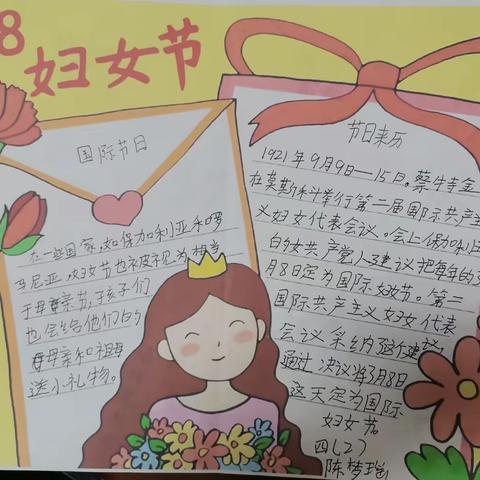 8
妇女节
国际节日
在一些国家,如保加利亚和罗
马尼亚,妇女节也被视为相当
于母亲节,孩子们
也会给他们的
母亲和祖母
送小礼物。
节日来历
1921年9月9日—15日。蔡特金
在莫斯科举行第二届国际共产主
义妇女代表会议。会上保加利亚
的女共产党人建议把每年的3
月8日定为国际妇女节。第二
国际共产主义妇女代表
会议采纳
通过决议将3月8日
这天定为国际
妇女节
四(2)
陈梦